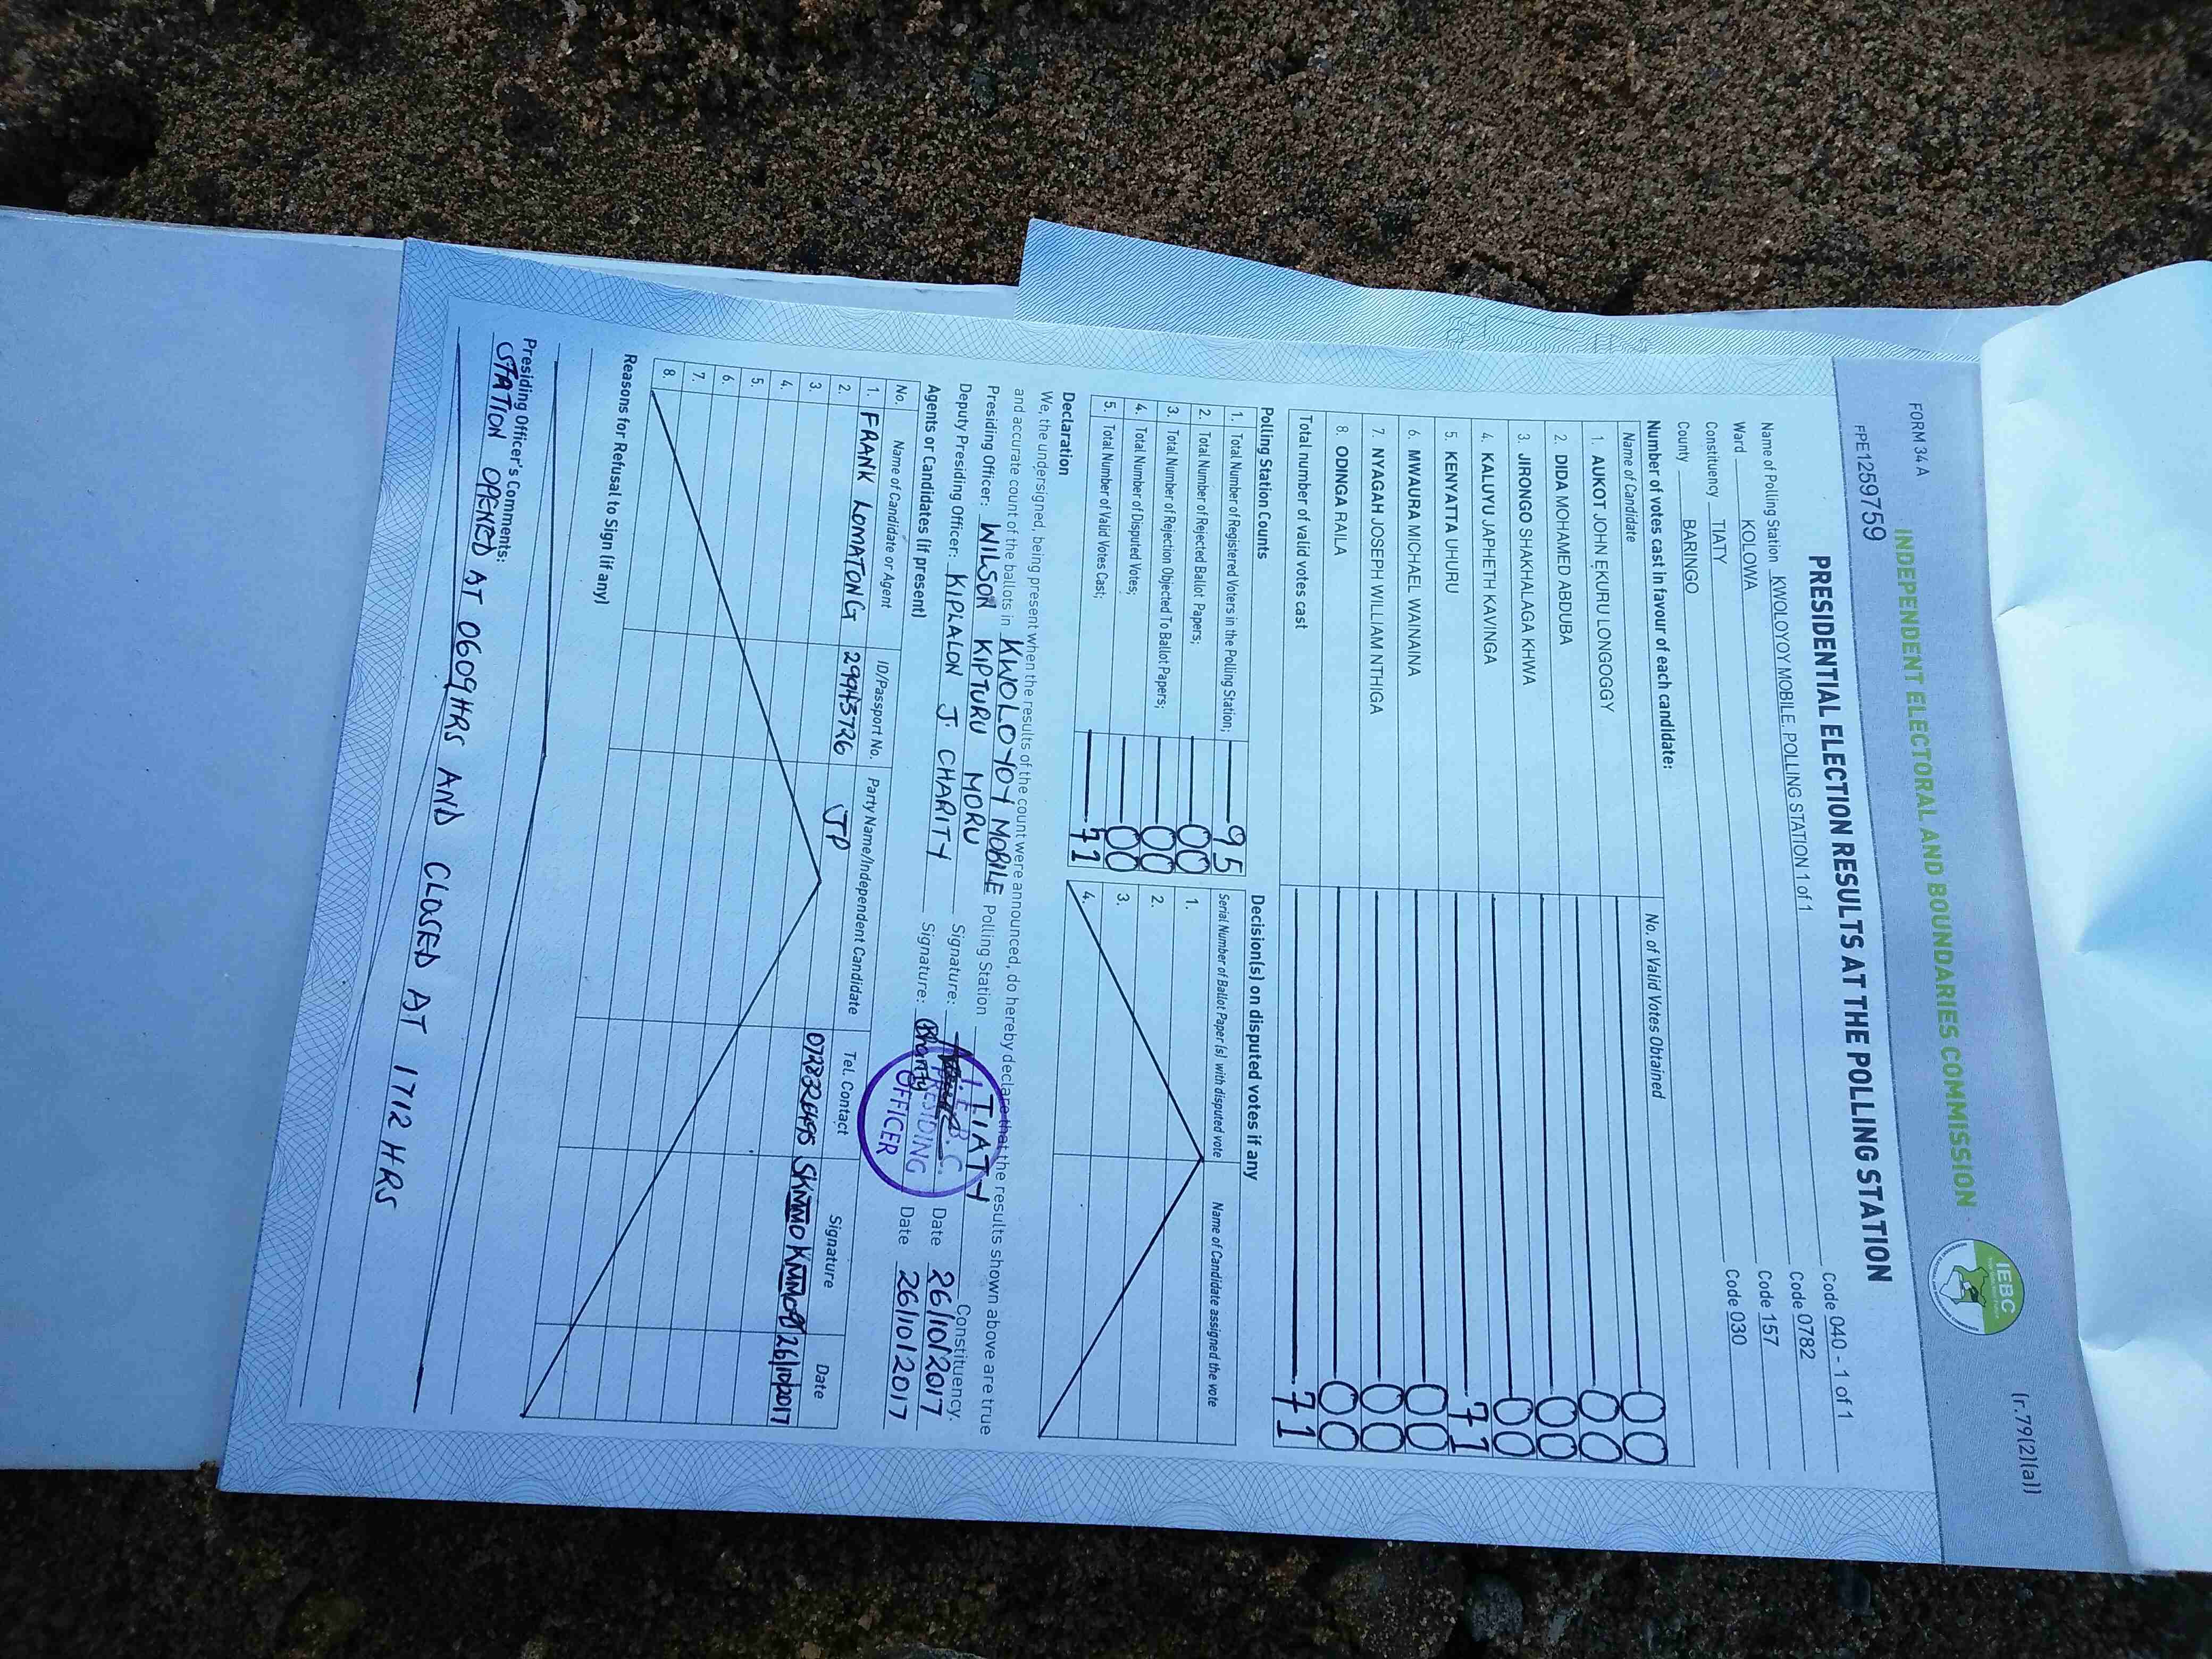 FORM 34 A
(r.79(2)(a))
INDEPENDENT ELECTORAL AND BOUNDARIES COMMISSION
IEBC
FPE1259759
PRESIDENTIAL ELECTION RESULTS AT THE POLLING STATION
Name of Polling Station KWOLOYOY MOBILE, POLLING STATION 1 of 1 Code 040 - 1 of 1
Ward KOLOWA Code 0782
Constituency TIATY Code 157
County BARINGO Code 030
Number of votes cast in favour of each candidate:
Name of Candidate No. of Valid Votes Obtained
1. AUKOT JOHN EKURU LONGOGGY 00
2. DIDA MOHAMED ABDUBA 00
3. JIRONGO SHAKHALAGA KHWA 00
4. KALUYU JAPHETH KAVINGA 00
5. KENYATTA UHURU 71
6. MWAURA MICHAEL WAINAINA 00
7. NYAGAH JOSEPH WILLIAM NTHIGA 00
8. ODINGA RAILA 00
Total number of valid votes cast 71
Polling Station Counts
1. Total Number of Registered Voters in the Polling Station; 95
2. Total Number of Rejected Ballot Papers; 00
3. Total Number of Rejection Objected To Ballot Papers; 00
4. Total Number of Disputed Votes; 00
5. Total Number of Valid Votes Cast; 71
Decision(s) on disputed votes if any
Serial Number of Ballot Paper(s) with disputed vote Name of Candidate assigned the vote
1.
2.
3.
4.
Declaration
We, the undersigned, being present when the results of the count were announced, do hereby declare that the results shown above are true
and accurate count of the ballots in KWOLOYOY MOBILE Polling Station TIATY Constituency.
Presiding Officer: WILSON KIPTURU MORU Signature: Date 26/10/2017
Deputy Presiding Officer: KIPLALON J. CHARITY Signature: Charity Date 26/10/2017
I.E.B.C.
PRESIDING
OFFICER
Agents or Candidates (if present)
No. Name of Candidate or Agent ID/Passport No. Party Name/Independent Candidate Tel. Contact Signature Date
1. FRANK LOMATONG 29943726 JP 26/10/2017
2.
3.
4.
5.
6.
7.
8.
Reasons for Refusal to Sign (if any)
Presiding Officer's Comments:
STATION OPENED AT 0609HRS AND CLOSED AT 1712 HRS